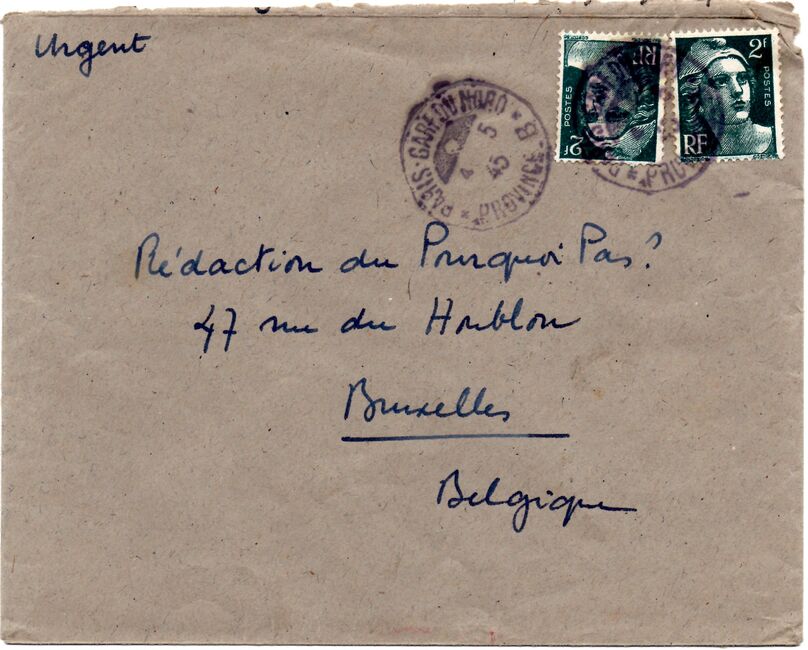 Urgent
PARIS-GARE DU NORD * B
4 5
45
* PROVINCE *
RF
POSTES
2F
2F
POSTES
RF
Rédaction du Pourquoi Pas?
47 rue du Houblon
Bruxelles
Belgique